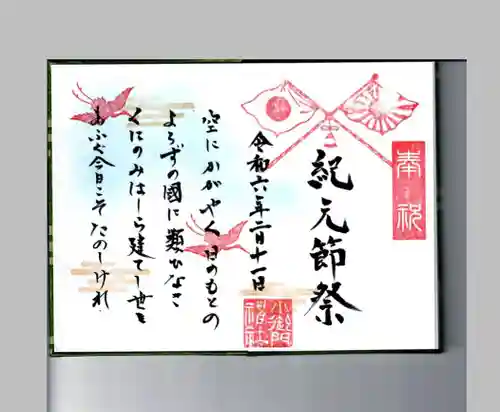 奉祝
紀元節祭
令和六年二月十一日
小御門
神社
空にかがやく日のもとの
よろずの國に類ひなき
くにのみはしら建てし世を
あふぐ今日こそたのしけれ